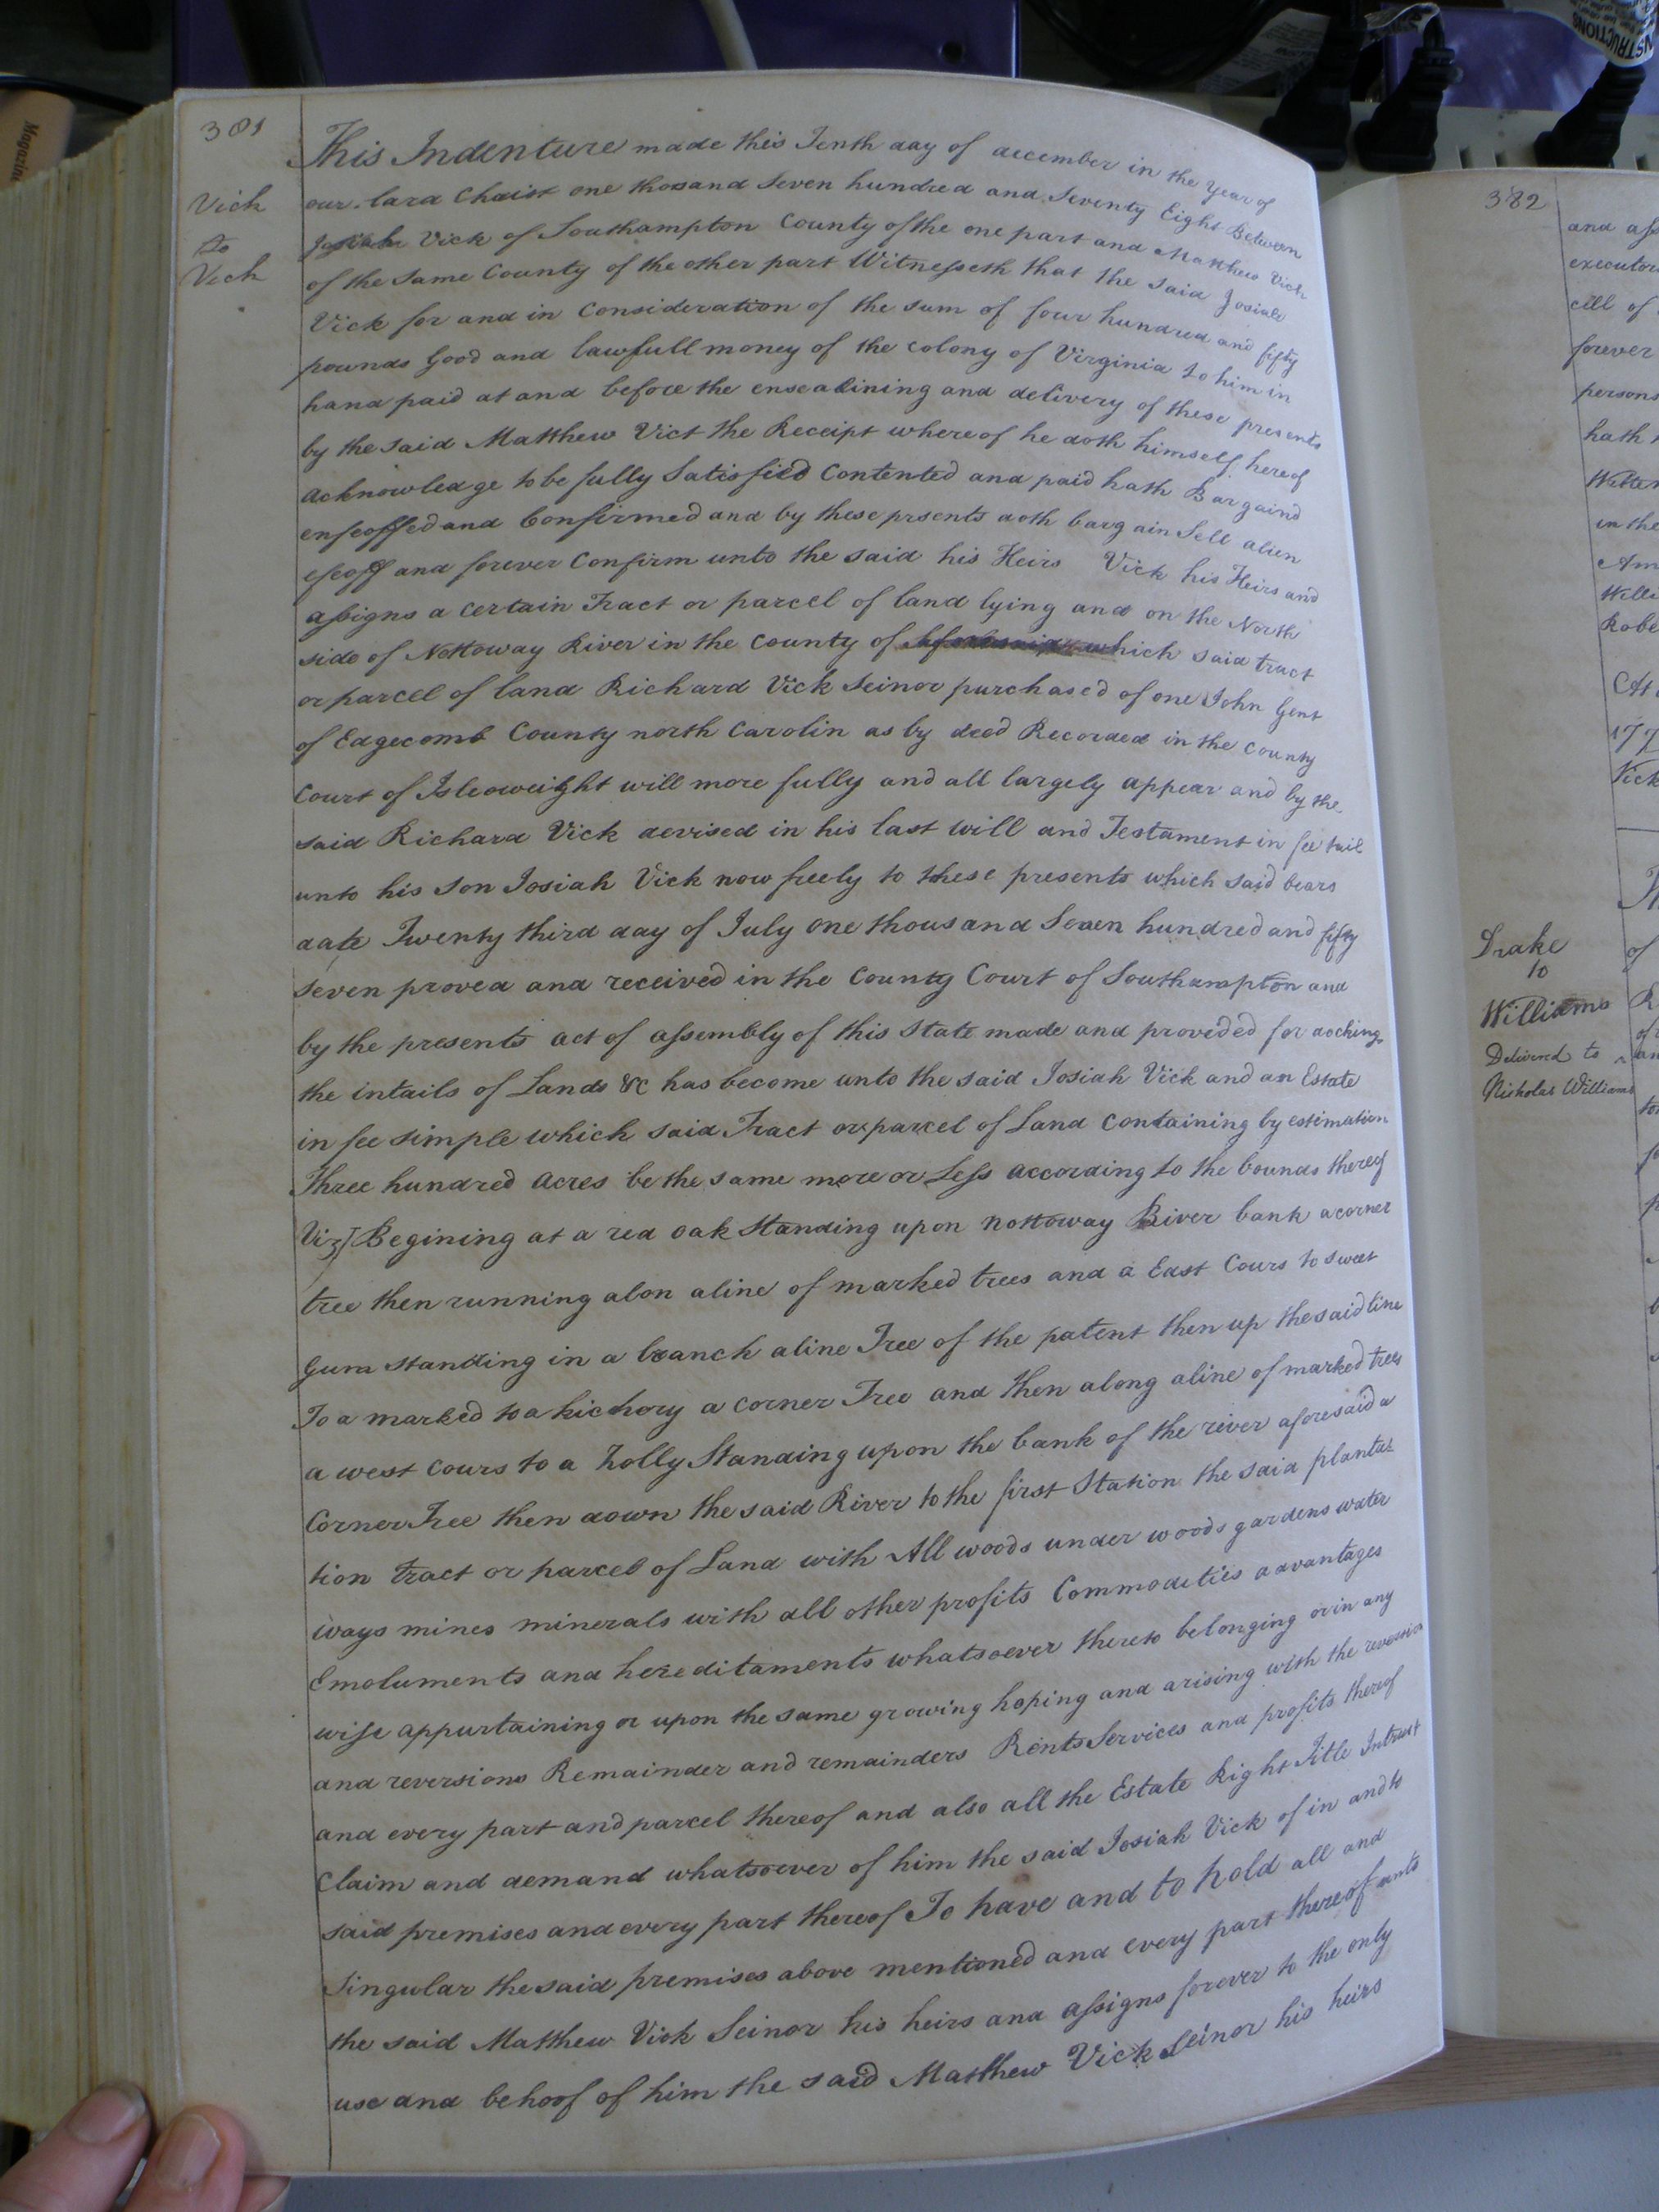 381
Vick
to
Vick
This Indenture made this Tenth day of december in the year of
our lard Chaist one thosand Seven hundred and Seventy Eight Between
Josiah Vick of Southampton County of the one part and Matthew Vick
of the Same County of the other part Witnesseth that the said Josiah
Vick for and in Consideration of the sum of four hundred and fifty
pounds Good and lawfull money of the colony of Virginia to him in
hand paid at and before the ensealining and delivery of these presents
by the said Matthew Vict the Receipt whereof he doth himself hereof
acknowledge to be fully Satisfied Contented and paid hath Bargaind
enfeoffed and Confirmed and by these prsents doth bargain Sell alien
efeoff and forever Confirm unto the said his Heirs Vick his Heirs and
assigns a certain Tract or parcel of land lying and on the North
side of Nottoway River in the county of which said tract
or parcel of land Richard Vick Seinor purchased of one John Gent
of Edgecomb County north Carolin as by deed Recorded in the county
Court of Isleoweight will more fully and all largely appear and by the
said Richard Vick devised in his last will and Testament in fee tail
unto his son Josiah Vick now freely to these presents which said bears
date Twenty third day of July one thousand Seven hundred and fifty
seven proved and received in the County Court of Southampton and
by the presents act of assembly of this State made and provided for docking
the intails of Lands &c has become unto the said Josiah Vick and an Estate
in fee simple which said Tract or parcel of Land containing by estimation
Three hundred acres be the same more or Less according to the bounds thereof
Viz] Begining at a red oak Standing upon nottoway River bank a corner
tree then running alon a line of marked trees and a East Cours to sweet
Gum standing in a branch a line Tree of the patent then up the said line
To a marked to a hickory a corner Tree and then along a line of marked trees
a west cours to a holly Standing upon the bank of the river aforesaid a
Corner Tree then down the said River to the first Station the said planta=
tion tract or parcel of Land with All woods under woods gardens water
ways mines minerals with all other profits Commodities advantages
Emoluments and hereditaments whatsoever thereto belonging or in any
wise appurtaining or upon the same growing hoping and arising with the reversion
and reversions Remainder and remainders Rents Services and profits thereof
and every part and parcel thereof and also all the Estate Right Title Intrust
Claim and demand whatsoever of him the said Josiah Vick of in and to
said premises and every part thereof To have and to hold all and
Singular the said premises above mentioned and every part thereof unto
the said Matthew Vick Seinor his heirs and assigns forever to the only
use and behoof of him the said Matthew Vick Seinor his heirs
382
and ass
executor
cell of
forever
persons
hath
in the
Am
Willi
Robe
At
177
Vick
Drake
to
Williams
Delivered to
Nicholas Williams